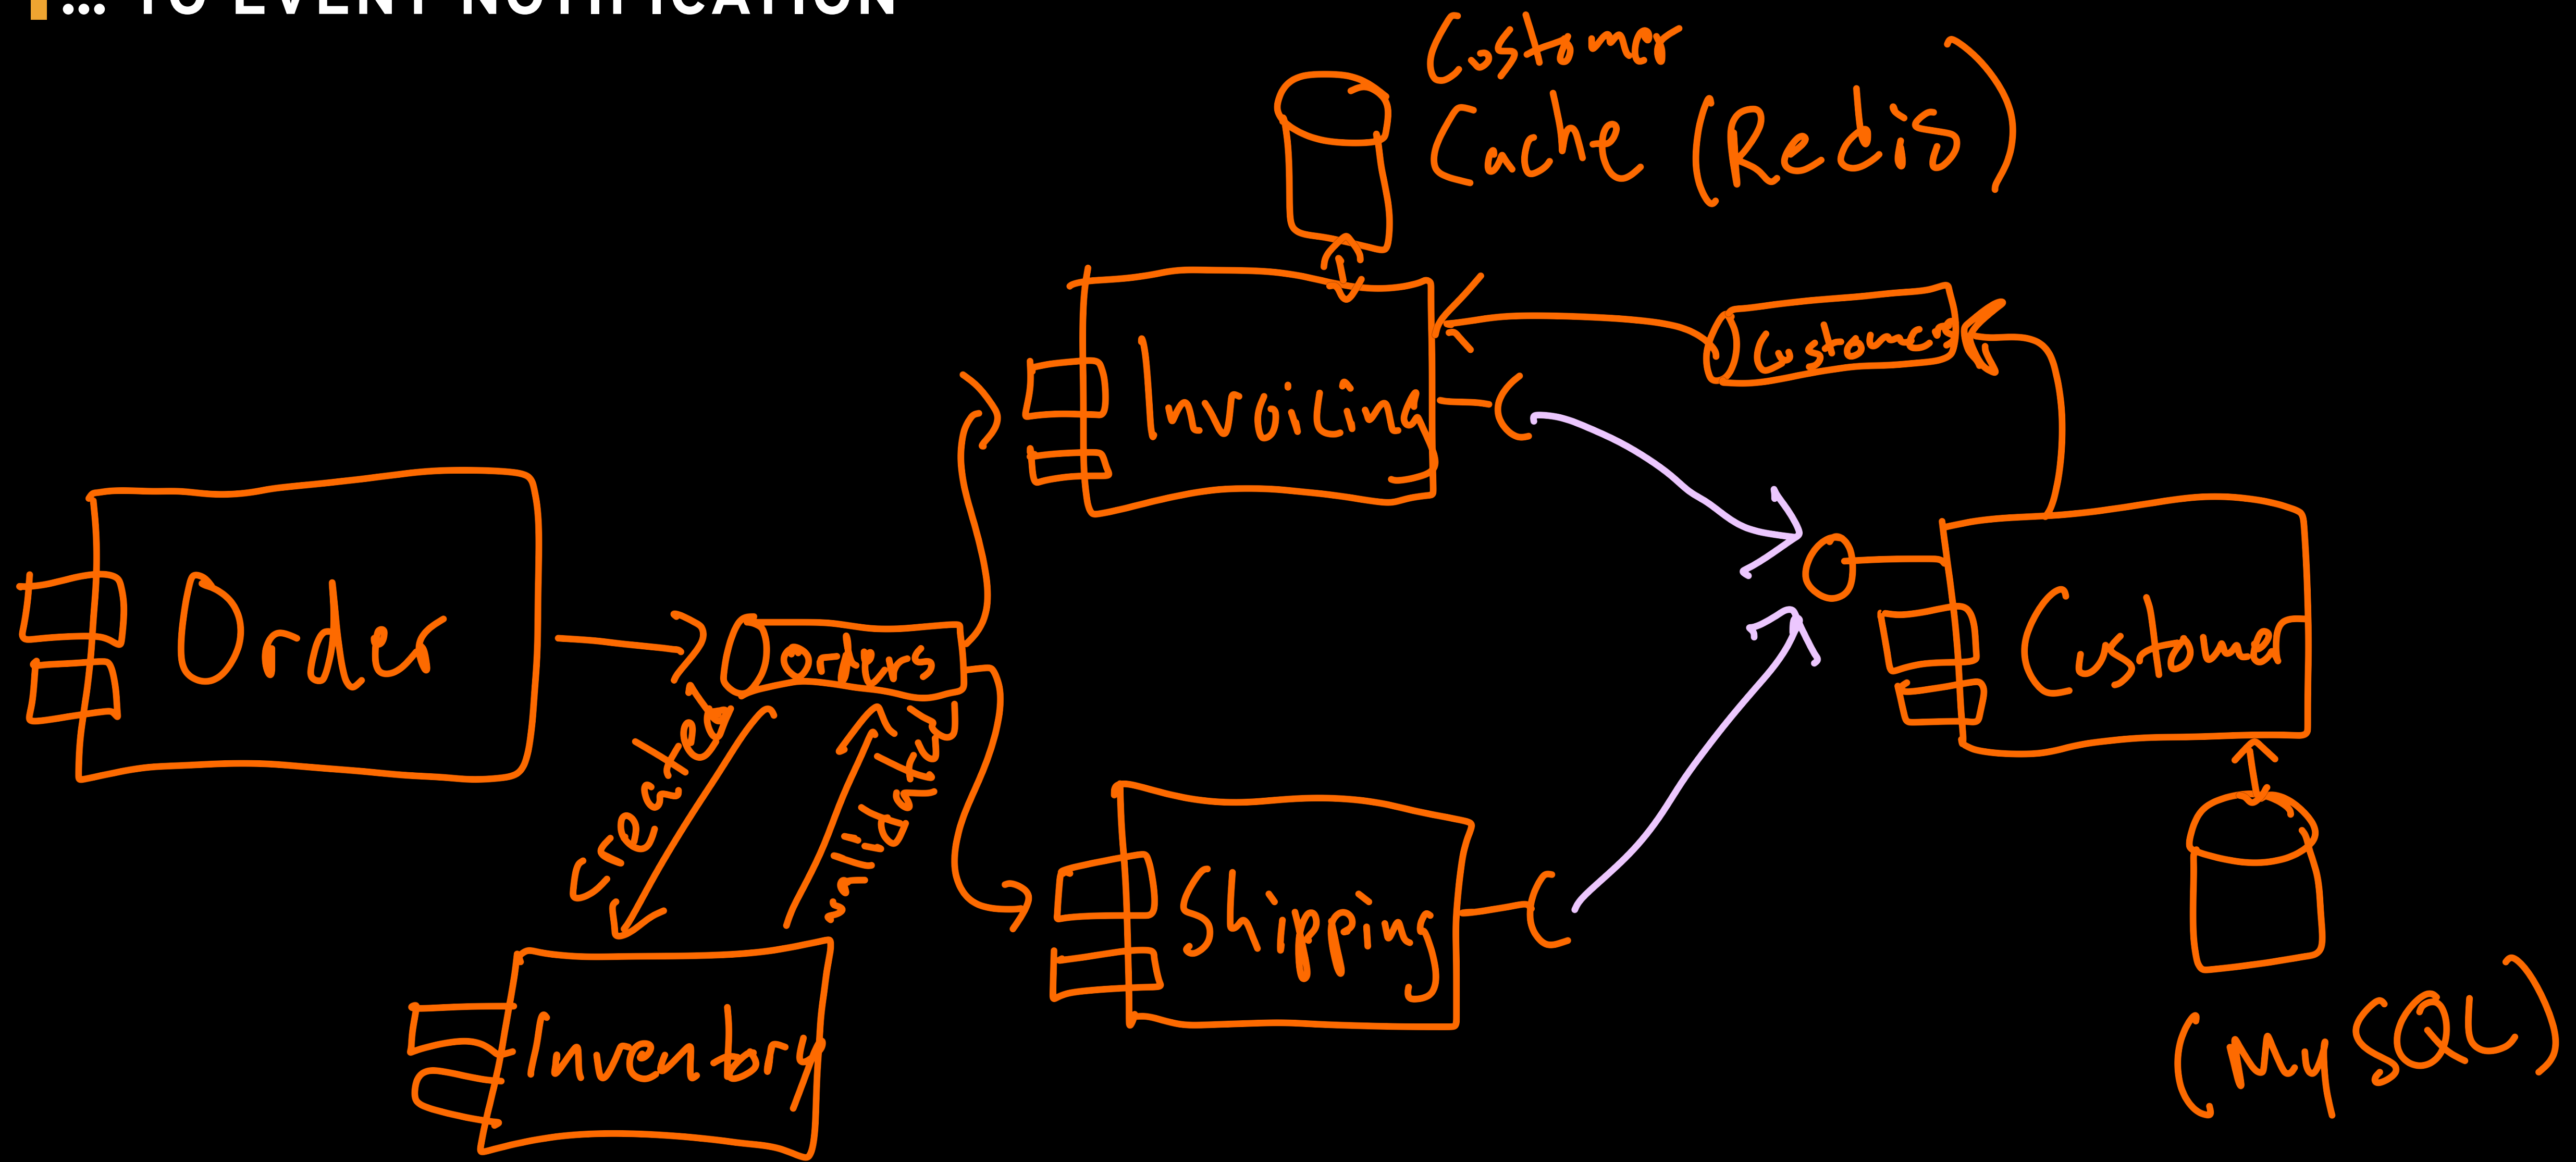 ... TO EVENT NOTIFICATION
Customer
Cache (Redis)
Invoicing
Customers
Order
Orders
Customer
created
validated
Shipping
Inventory
(MySQL)